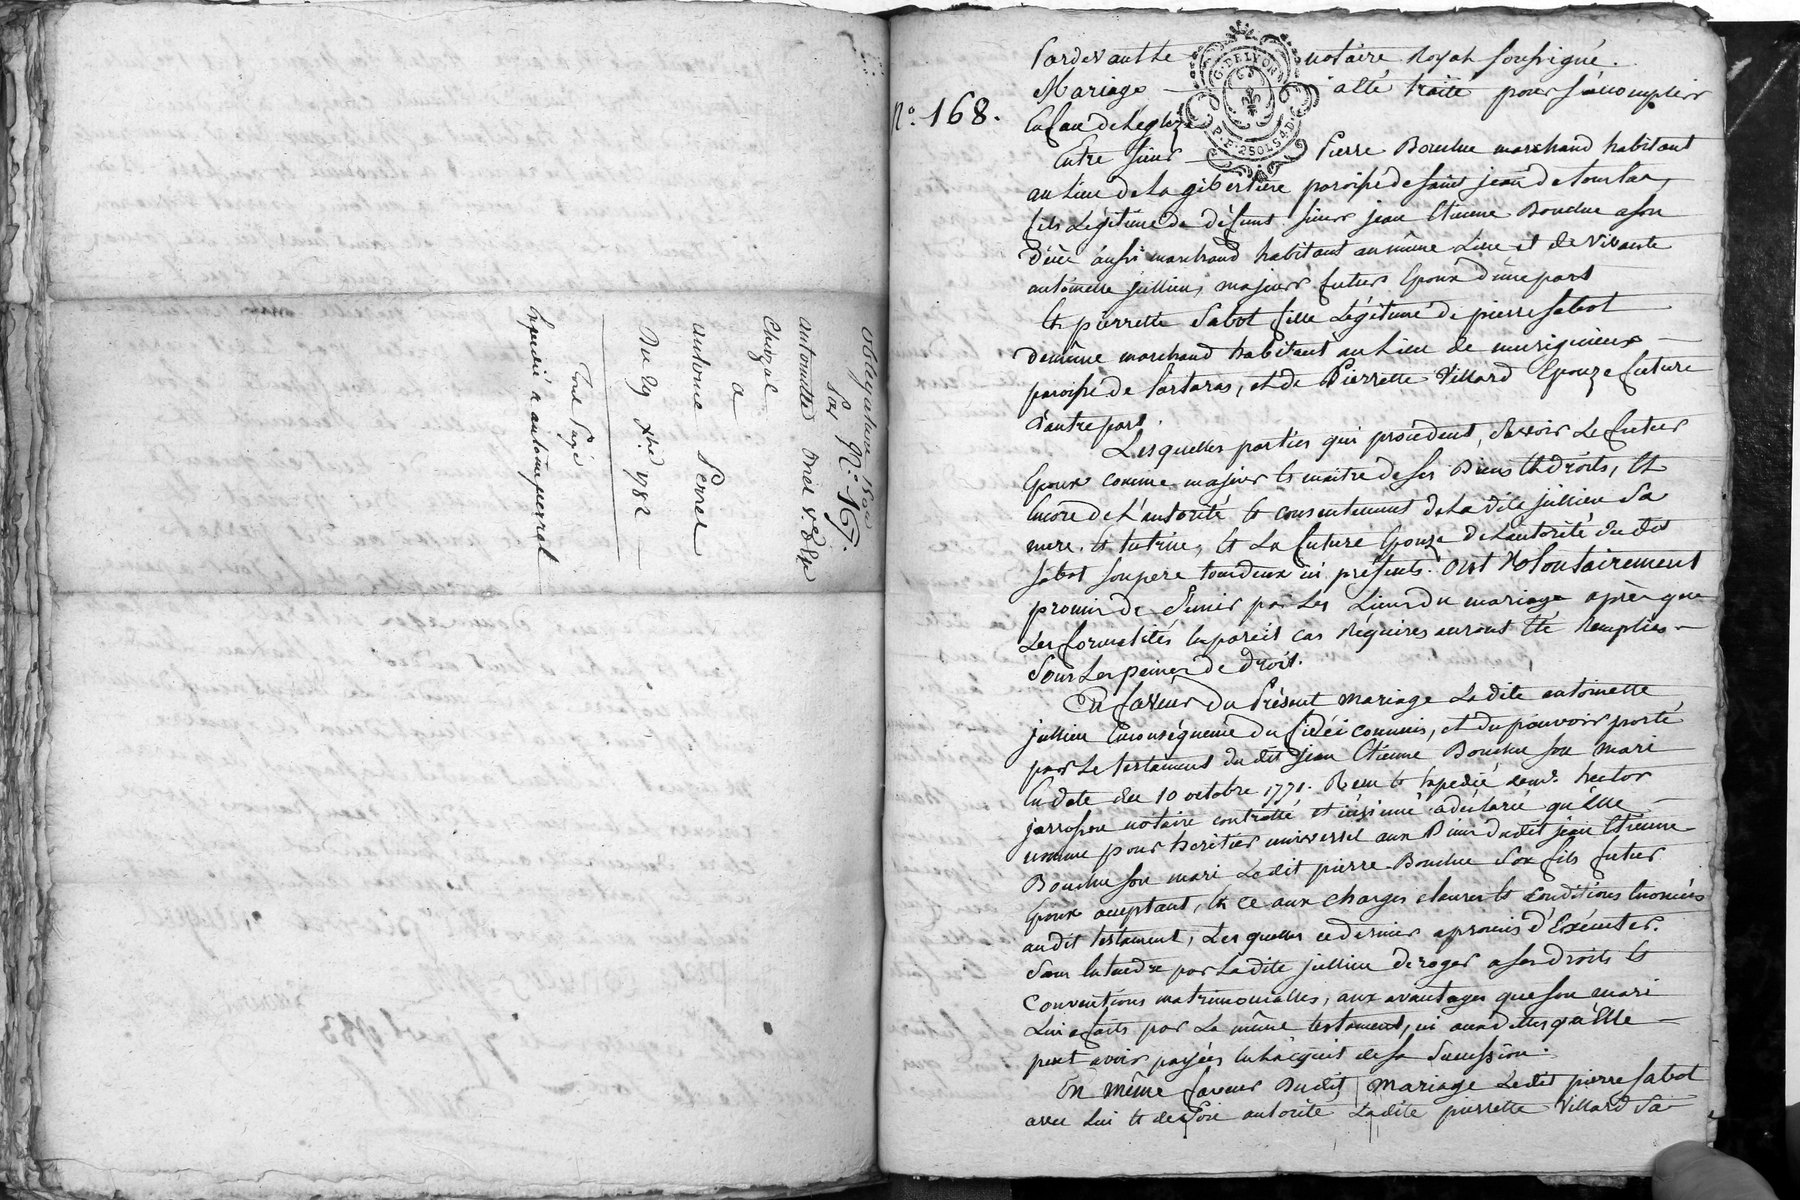 obligation 150#
Par N.° 167.
antoinette Morel V.e
Chizal
a
antoine Perral
Du 29 Xbre 1782
Pour Sa
Expédié a antoine perral
N.° 168.
Pardevant le notaire Royal soussigné.
Mariage a été traité pour s'accomplir
En face de l'eglize
Entre sieur Pierre Bouchu marchand habitant
au lieu de la gibertière paroisse de saint jean de touslas
fils Légitime de défunt sieur jean Etienne Bouchu a son
décè aussi marchand habitant au même Lieu et de vivante
antoinette jullien, majeur futur Epoux d'une part
Et pierrette Sabot fille Légitime de pierre sabot
de même marchand habitant au Lieu de murigneux
paroisse de Tartaras, et de Pierrette Villard Epouze future
d'autre part.
Lesquelles parties qui procédent, Savoir Le futur
Epoux comme majeur et maitre de ses Biens et droits, Et
Encore de l'autorité et consentement de la dite jullien Sa
mere et tutrice, Et La future Epouze de l'autorité du dit
sabot son pere tous deux ici présents. Ont Volontairement
promis de S'unir par Les Liens du mariage après que
Les formalités En pareil cas Réquises auront été Remplies
Sous Les peines de droit.
En faveur du Présent mariage Ladite antoinette
jullien En conséquence du fidéi commis, et du pouvoir porté
par Le testament du dit jean Etienne Bouchu son mari
En date du 10 octobre 1771. Reçu Et Expedié par hector
jarrosson notaire controllé et insinué a déclaré qu'Elle
nomme pour heritier universel aux Biens du dit jean Etienne
Bouchu son mari Ledit pierre Bouchu Son fils futur
Epoux acceptant, Et ce aux charges clauses Et conditions Enoncées
au dit testament, Lesquelles ce dernier a promis d'Exécuter.
Sans Entendre par Ladite jullien déroger a ses droits Et
Conventions matrimonialles, aux avantages que son mari
Lui a faits par Le même testament, ni aux dettes qu'Elle
peut avoir payées En l'acquit de sa Succession.
En même faveur Dudit mariage Ledit pierre Sabot
avec Lui Et de Son autorité Ladite pierrette Villard Sa
G. DE LYON
P. F. 2 SOLS 4 D.